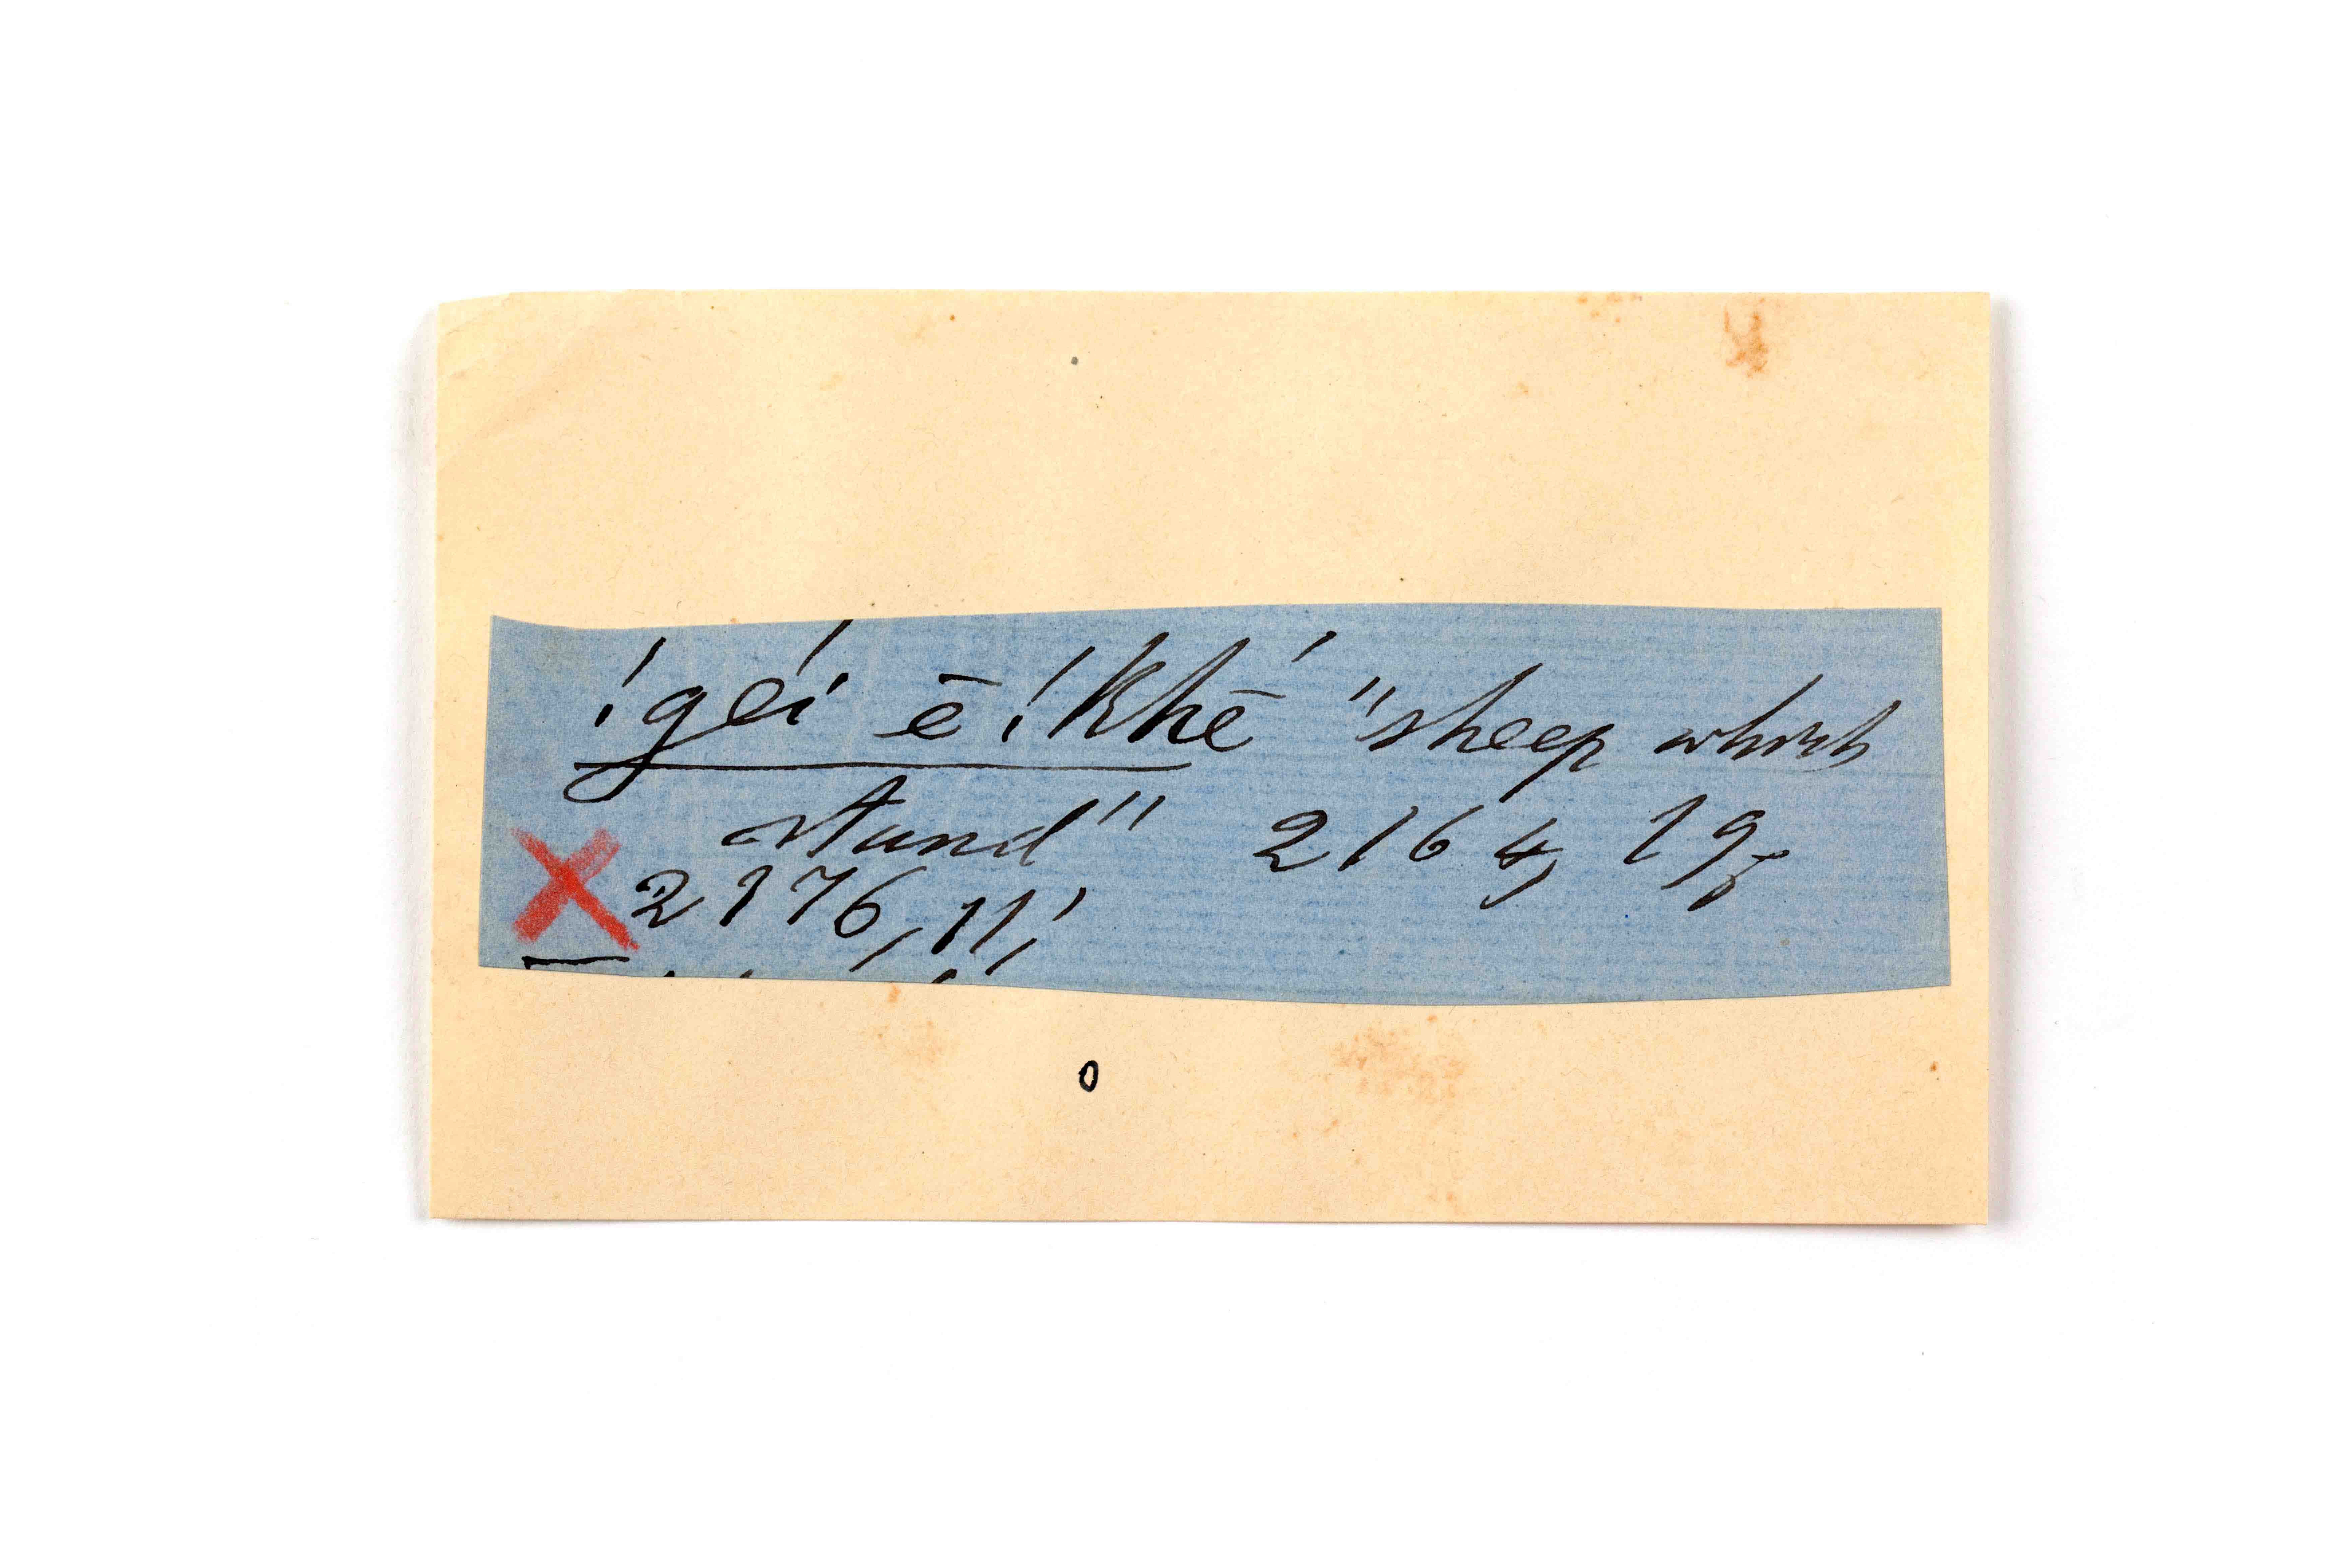 !géi ē !khé "sheep which
stand" 2164, 19;
2176, 11;
0